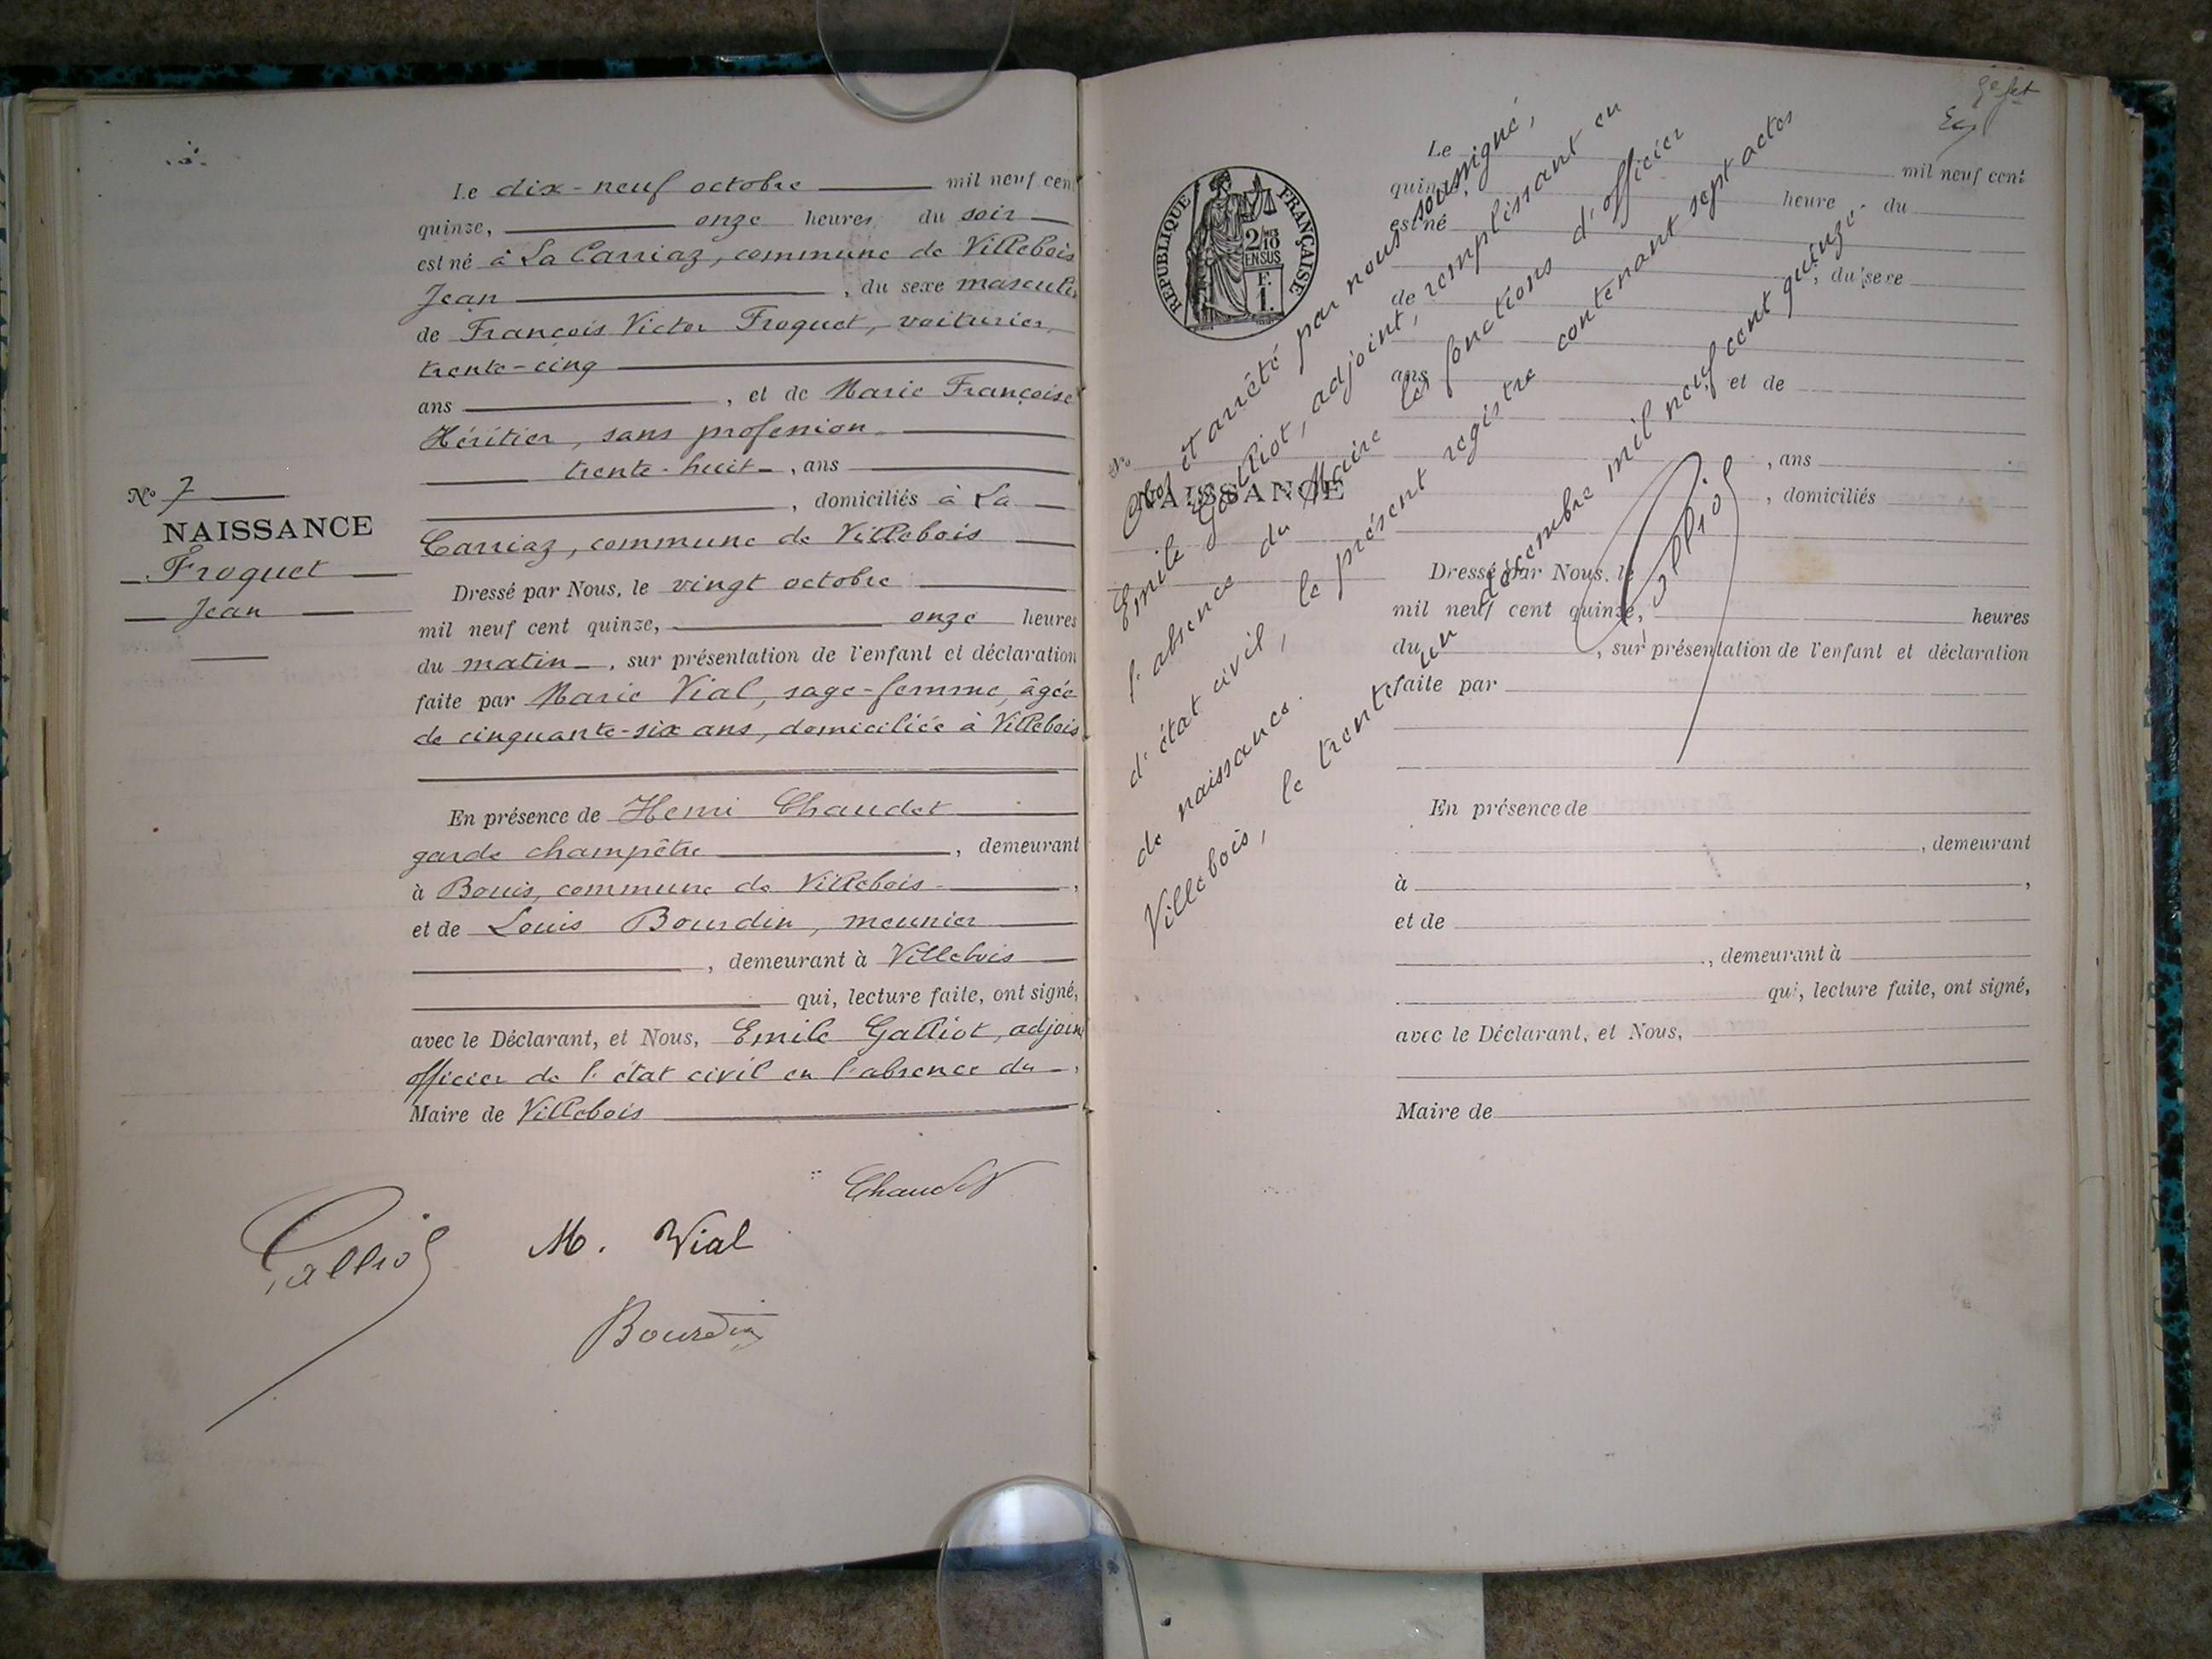 Le dix-neuf octobre mil neuf cen
quinze, onze heures du soir
est né à La Carriaz, commune de Villebois
Jean , du sexe masculin
de François Victor Froquet, voiturier,
trente-cinq
ans , et de Marie Françoise
Héritier, sans profession
trente-huit , ans
, domiciliés à La
Carriaz, commune de Villebois
Nº 7
NAISSANCE
Froquet
Jean
Dressé par Nous, le vingt octobre
mil neuf cent quinze, onze heures
du matin , sur présentation de l'enfant et déclaration
faite par Marie Vial, sage-femme, âgée
de cinquante-six ans, domiciliée à Villebois
En présence de Henri Chaudet
garde champêtre , demeurant
à Bouis, commune de Villebois ,
et de Louis Bourdin, meunier
, demeurant à Villebois
qui, lecture faite, ont signé,
avec le Déclarant, et Nous, Emile Galliot, adjoin
officier de l'état civil en l'absence du ,
Maire de Villebois
Chaudet
Galliot M. Vial
Bourdin
RÉPUBLIQUE FRANÇAISE
2/10
EN SUS
F.
1.
Le mil neuf cent
quinze, heure du
est né
, du sexe
de
ans , et de
, ans
, domiciliés
Nº
NAISSANCE
Dressé par Nous, le
mil neuf cent quinze, heures
du , sur présentation de l'enfant et déclaration
faite par
En présence de
, demeurant
à ,
et de
, demeurant à
qui, lecture faite, ont signé,
avec le Déclarant, et Nous,
Maire de
Clos et arrêté par nous soussigné,
Emile Galliot, adjoint, remplissant en
l'absence du Maire les fonctions d'officier
d'état civil, le présent registre contenant sept actes
de naissance.
Villebois, le trente un décembre mil neuf cent quinze.
Galliot